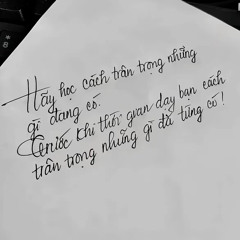 Hãy học cách trân trọng những
gì đang có.
Trước khi thời gian dạy bạn cách
trân trọng những gì đã từng có!